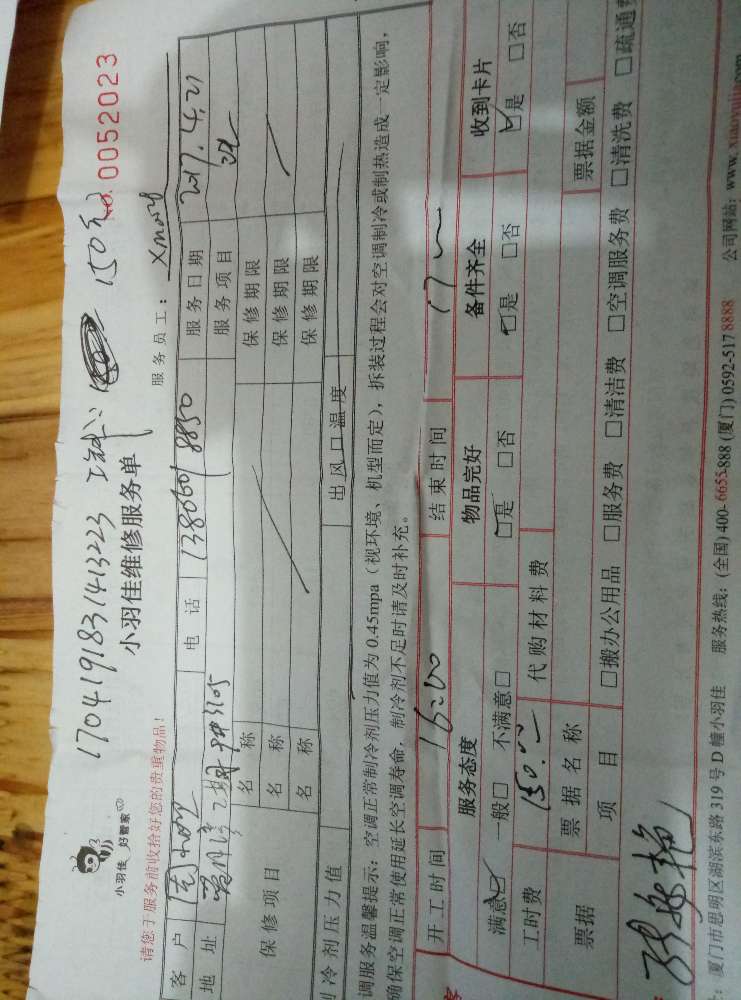 1704191831413223 工料：150元
NO.0052023
小羽佳 好管家
小羽佳维修服务单
请您于服务前收拾好您的贵重物品！
服务员工：
客户 电话 服务日期 2017.4.21
地址 服务项目
保修项目 名称 保修期限
名称 保修期限
名称 保修期限
制冷剂压力值 出风口温度
调服务温馨提示：空调正常制冷剂压力值为 0.45mpa（视环境、机型而定），拆装过程会对空调制冷或制热造成一定影响，
确保空调正常使用延长空调寿命，制冷剂不足时请及时补充。
开工时间 16:00 结束时间
服务态度 物品完好 备件齐全 收到卡片
满意☑ 一般□ 不满意□ ☑是 □否 ☑是 □否 ☑是 □否
工时费 代购材料费
票据 票据名称 票据金额
项目 □搬办公用品 □服务费 □清洁费 □空调服务费 □清洗费 □疏通费
：厦门市思明区湖滨东路 319 号 D 幢小羽佳 服务热线：(全国) 400-6655-888 (厦门) 0592-517 8888 公司网站：www.xiaoyujia.com